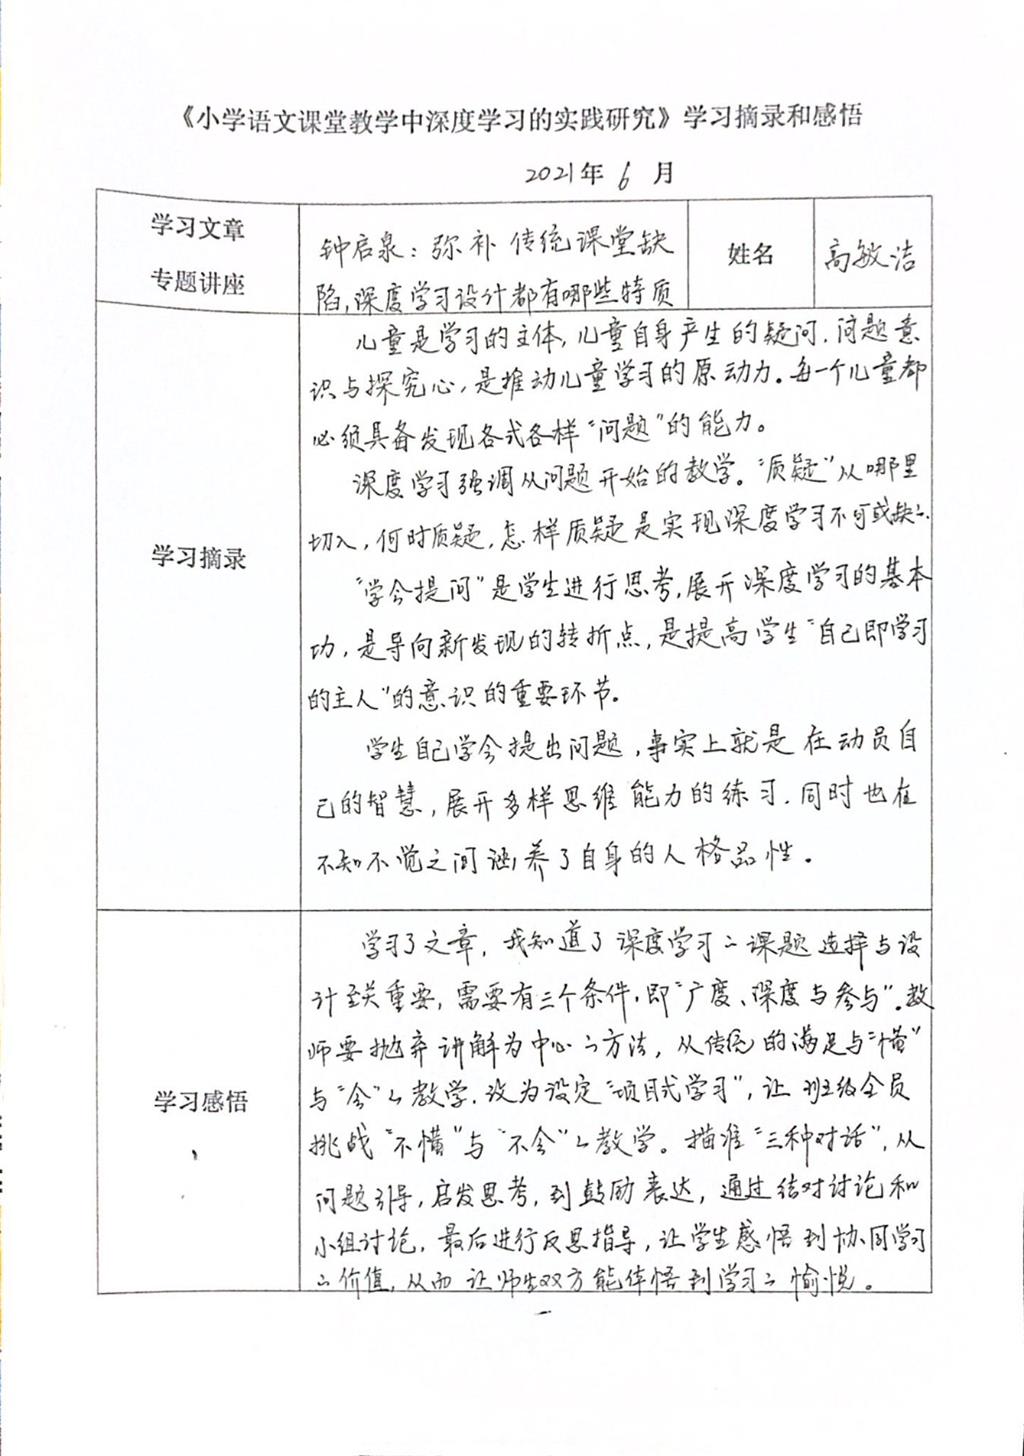 《小学语文课堂教学中深度学习的实践研究》学习摘录和感悟
2021年 6 月
学习文章
专题讲座
钟启泉：弥补传统课堂缺
陷，深度学习设计都有哪些特质
姓名
高敏洁
学习摘录
儿童是学习的主体，儿童自身产生的疑问．问题意
识与探究心，是推动儿童学习的原动力。每一个儿童都
必须具备发现各式各样“问题”的能力。
深度学习强调从问题开始的教学。“质疑”从哪里
切入，何时质疑，怎样质疑是实现深度学习不可或缺的．
“学会提问”是学生进行思考，展开深度学习的基本
功，是导向新发现的转折点，是提高学生“自己即学习
的主人”的意识的重要环节。
学生自己学会提出问题，事实上就是在动员自
己的智慧，展开多样思维能力的练习．同时也在
不知不觉之间涵养了自身的人格品性．
学习感悟
学习了文章，我知道了深度学习的课题选择与设
计至关重要，需要有三个条件，即“广度、深度与参与”．教
师要抛弃讲解为中心的方法，从传统的满足与“懂”
与“会”的教学．改为设定“项目式学习”，让班级全员
挑战“不懂”与“不会”的教学。瞄准“三种对话”，从
问题引导，启发思考，到鼓励表达，通过结对讨论和
小组讨论，最后进行反思指导，让学生感悟到协同学习
的价值，从而让师生双方能体悟到学习的愉悦。